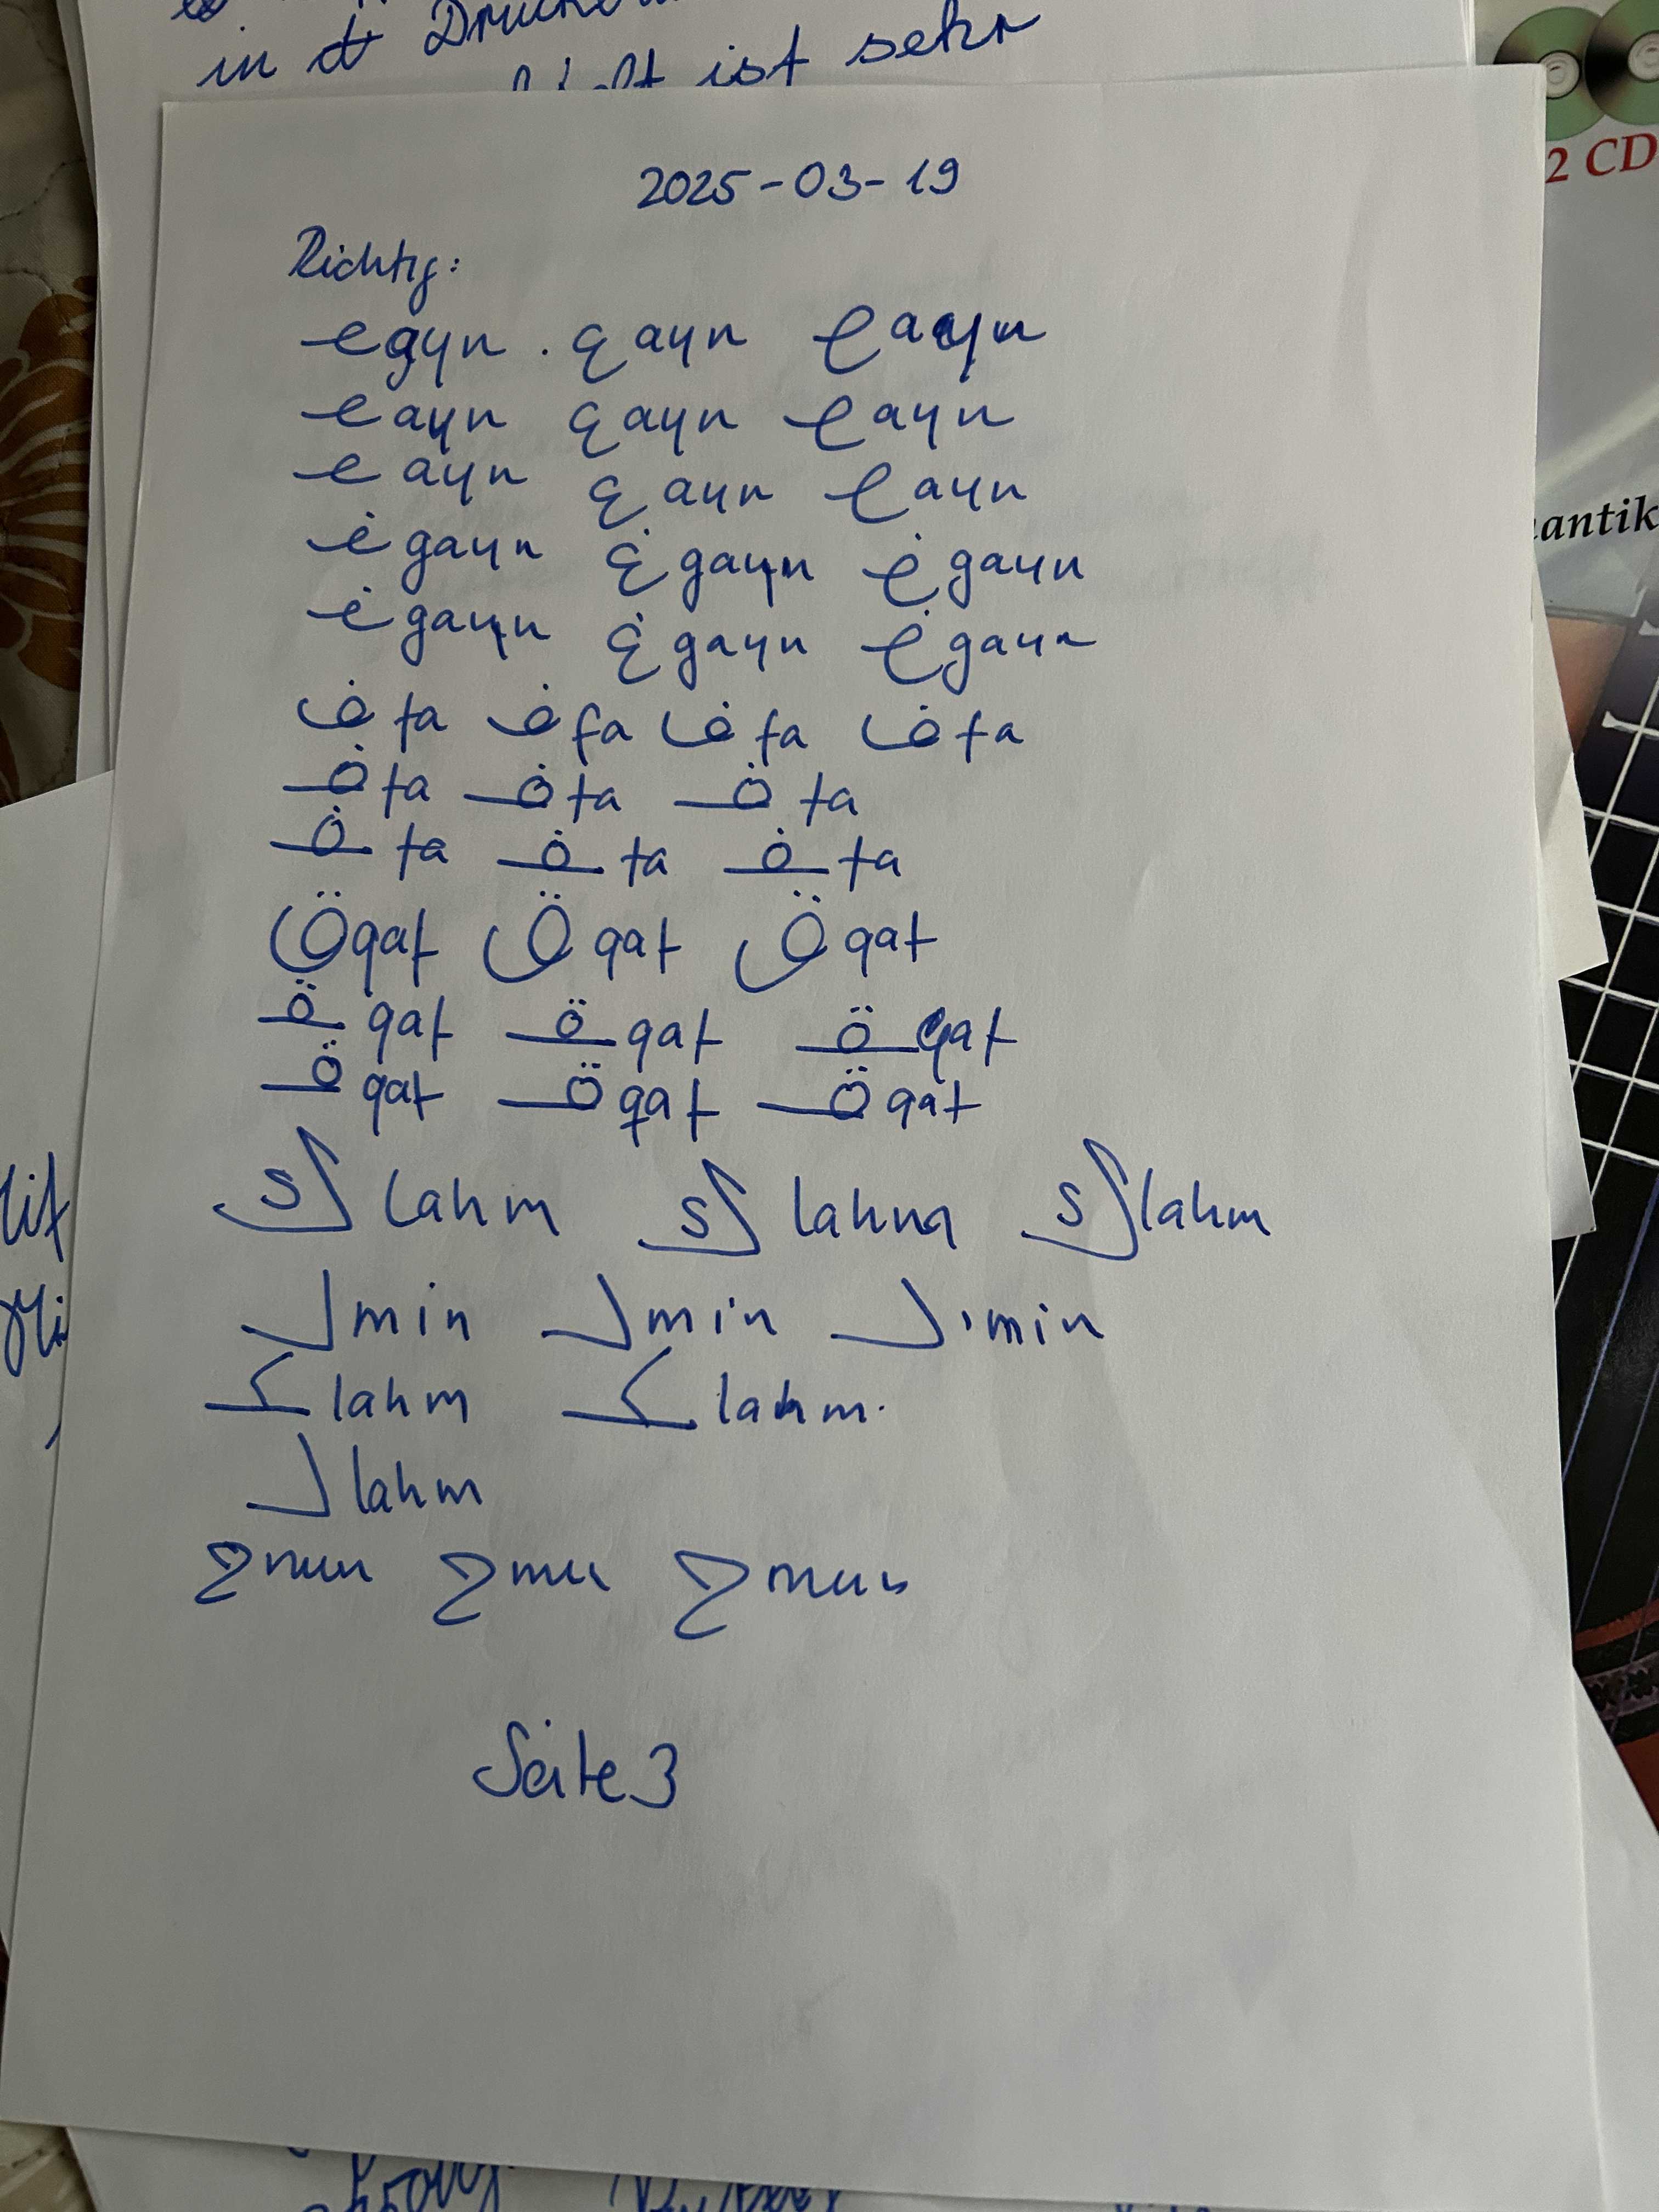 in d Drucke
ist sehr
2 CD
antik
2025-03-19
Richtig:
ع ayn . ع ayn ع ayn
ع ayn ع ayn ع ayn
ع ayn ع ayn ع ayn
غ gayn غ gayn غ gayn
غ gayn غ gayn غ gayn
ف fa ف fa ف fa ف fa
ف fa ف fa ف fa
ف fa ف fa ف fa
ق qaf ق qaf ق qaf
ق qaf ق qaf ق qaf
ق qaf ق qaf ق qaf
ك lahm ك lahm ك lahm
ل min ل min ل min
ك lahm ك lahm.
ل lahm
nun nun nun
Seite 3